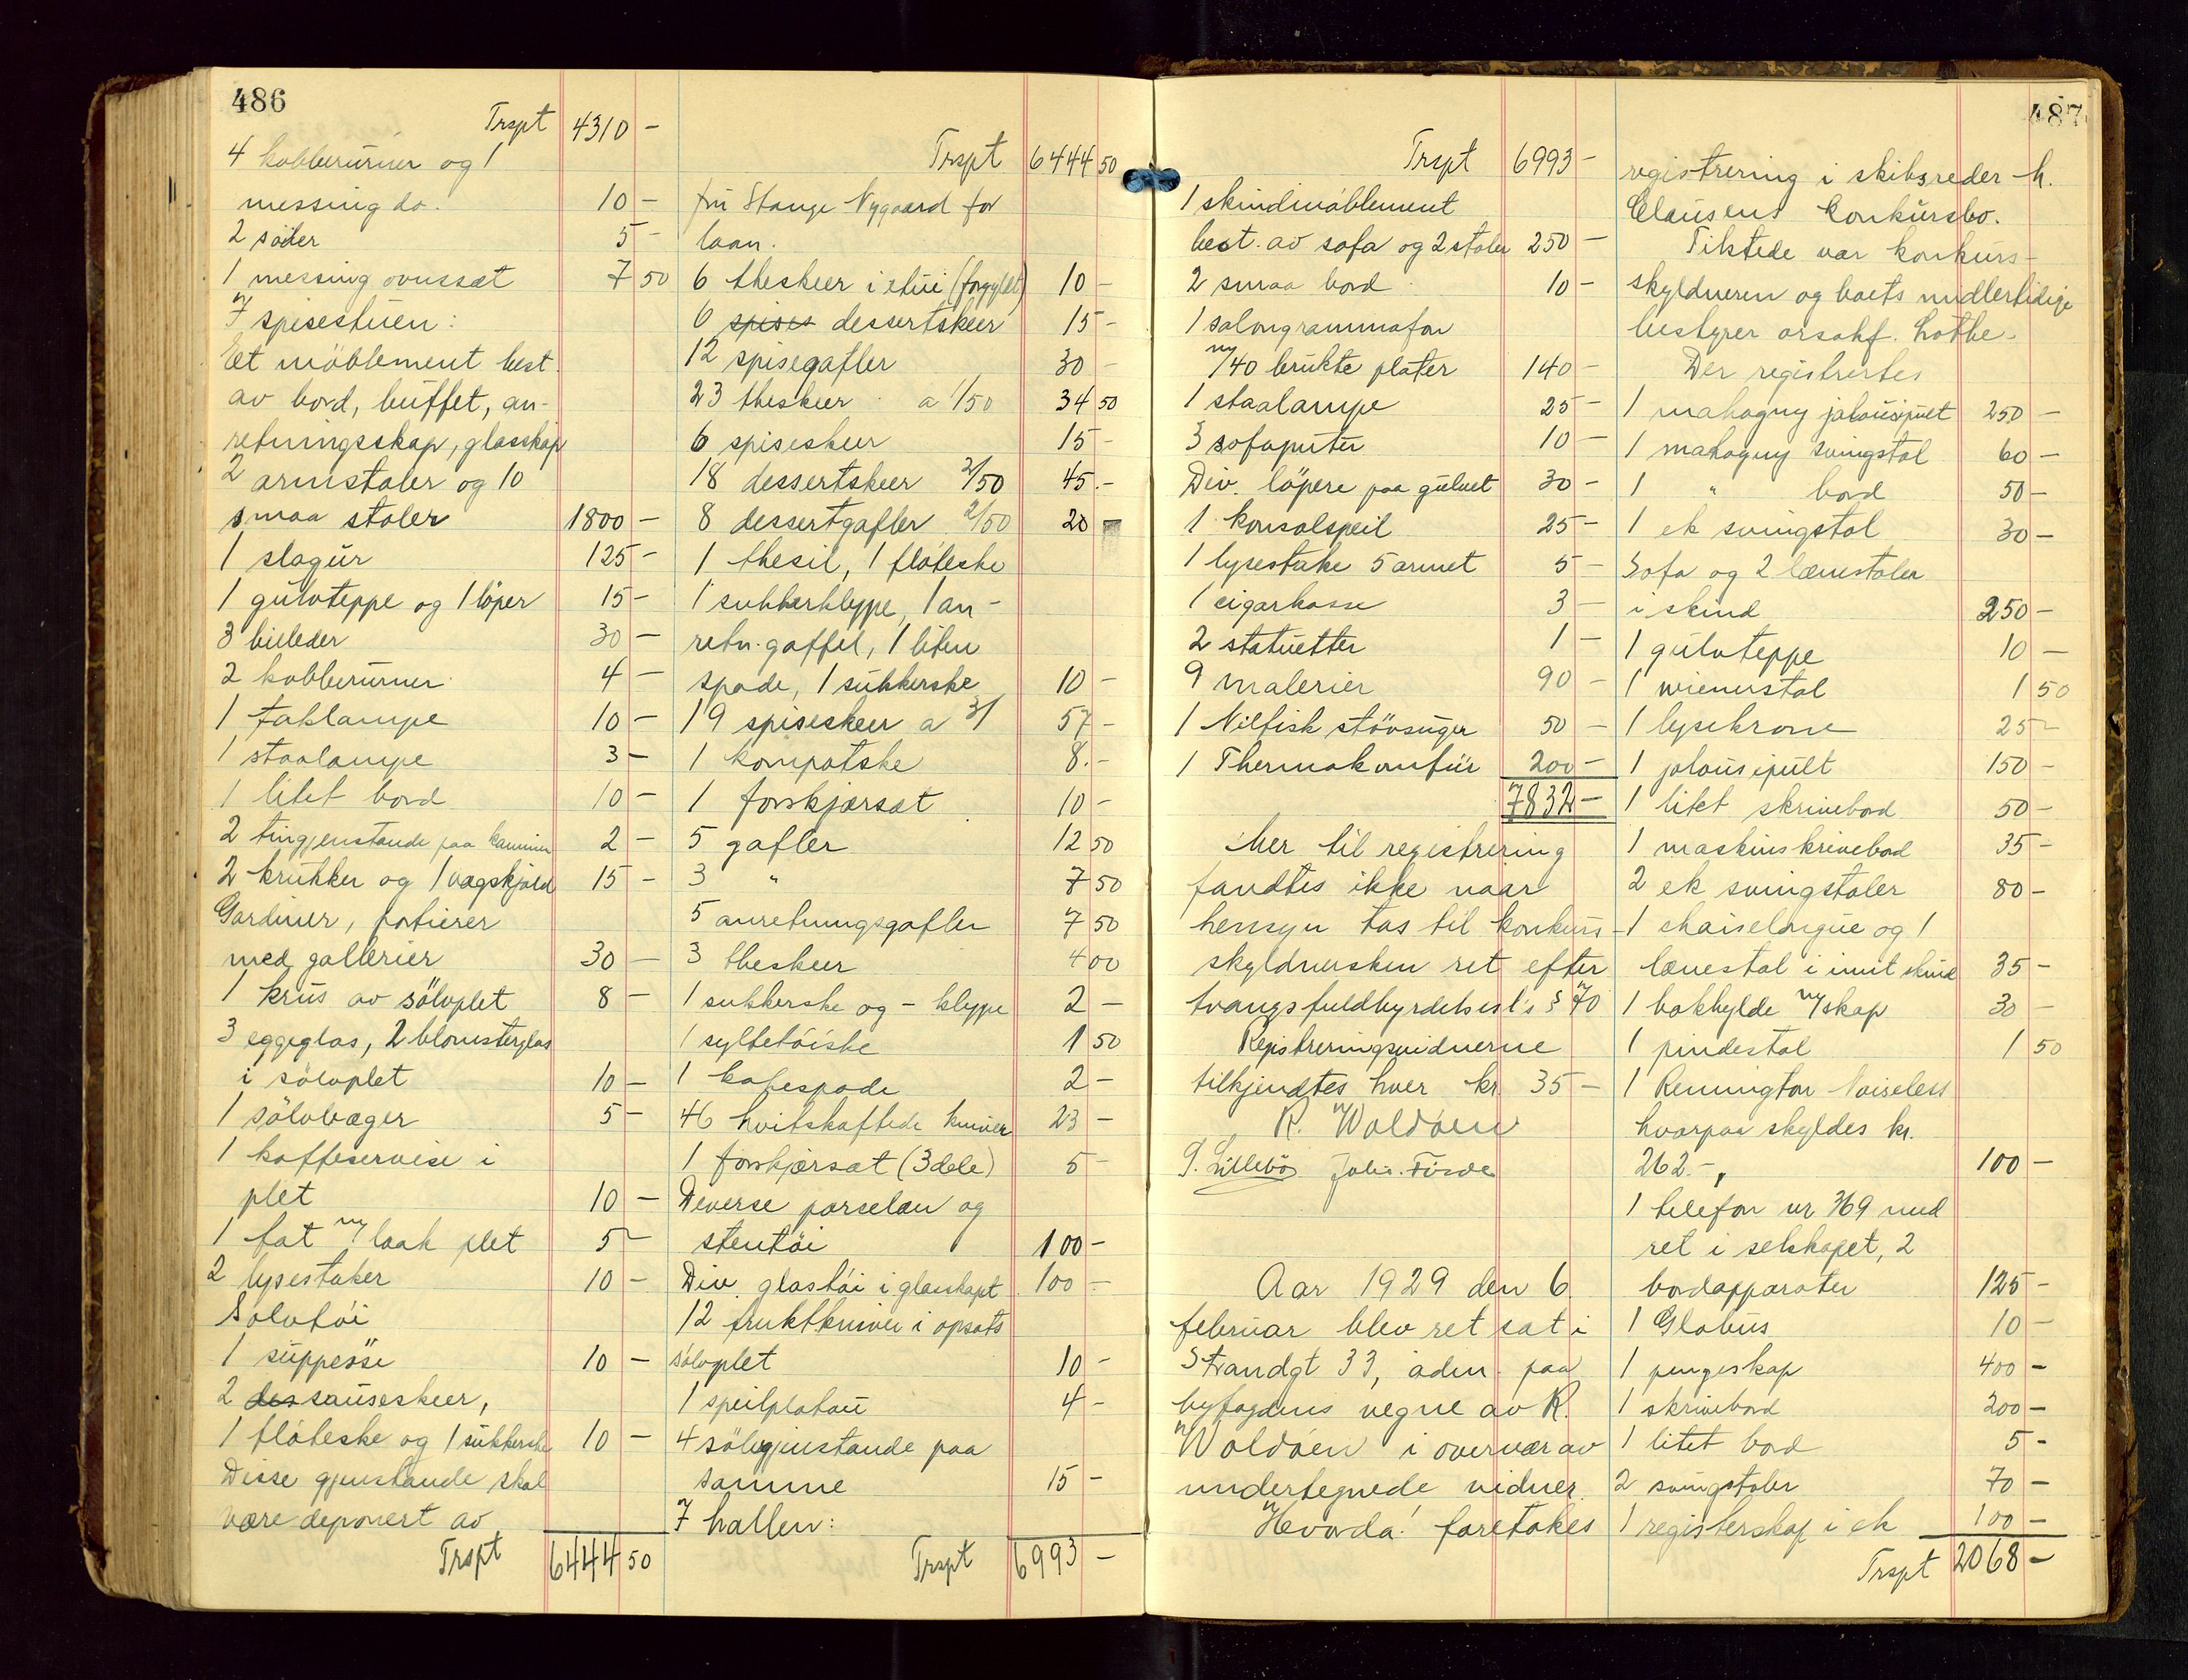 486
Trspt 4310 –
4 kobberurner og 1
messing do. 10 –
2 söiler 5 –
1 messing ovnssæt 7 50
I spisestuen:
Et möblement best.
av bord, buffet, an-
retningsskap, glasskap
2 armstoler og 10
smaa stoler 1800 –
1 slagur 125 –
1 gulvteppe og 1 löper 15 –
3 billeder 30 –
2 kobberurner 4 –
1 taklampe 10 –
1 staalampe 3 –
1 litet bord 10 –
2 tingjenstande paa kaminen 2 –
2 krukker og 1 vægskjold 15 –
Gardiner, portierer
med gallerier 30 –
1 krus av sölvplet 8 –
3 eggeglas, 2 blomsterglas
i sölvplet 10 –
1 sölvbæger 5 –
1 kaffeservise i
plet 10 –
1 fat m/ laak plet 5 –
2 lysestaker 10 –
Sölvtöi
1 suppeöse 10 –
2 des sauseskeer,
1 flöteske og 1 sukkerske 10 –
Disse gjenstande skal
være deponert av
Trspt 6444 50
Trspt 6444 50
fru Stange Nygaard for
laan.
6 theskeer i etui (forgyldt) 10 –
6 spises dessertskeer 15 –
12 spisegafler 30 –
23 theskeer a 1/50 34 50
6 spiseskeer 15 –
18 dessertskeer 2/50 45 –
8 dessertgafler 2/50 20 –
1 thesil, 1 flöteske
1 sukkerklype, 1 an-
retn. gaffel, 1 liten
spade, 1 sukkerske 10 –
19 spiseskeer a 3/ 57 –
1 kompotske 8 –
1 forskjærsæt 10 –
5 gafler 12 50
3 " 7 50
5 anretningsgafler 7 50
3 theskeer 4 00
1 sukkerske og – klype 2 –
1 syltetöiske 1 50
1 kakespade 2 –
46 hvitskaftede kniver 23 –
1 forskjærsæt (3 dele) 5 –
Diverse porselæn og
stentöi 100 –
Div. glastöi i glasskapet 100 –
12 fruktkniver i opsats
sölvplet 10 –
1 speilplatau 4 –
4 sölvgjenstande paa
samme 15 –
I hallen:
Trspt 6993 –
Trspt 6993 –
1 skindmöblement
best. av sofa og 2 stoler 250 –
2 smaa bord 10 –
1 salongrammofon
m/ 40 brukte plater 140 –
1 staalampe 25 –
3 sofaputer 10 –
Div. löpere paa gulvet 30 –
1 konsolspeil 25 –
1 lysestake 5 armet 5 –
1 cigarkasse 3 –
2 statuetter 1 –
9 malerier 90 –
1 Nilfisk stövsuger 50 –
1 Thermakomfür 200 –
7832 –
Mer til registrering
fandtes ikke naar
hensyn tas til konkurs-
skyldnersken ret efter
tvangsfuldbyrdelsesl's § 70
Registreringsvidnerne
tilkjendtes hver kr. 35 –
R. Woldöen
Johs. Förde
Aar 1929 den 6.
februar blev ret sat i
Strandgt 33, adm. paa
byfogdens vegne av R.
Woldöen i overvær av
undertegnede vidner.
Hvorda! foretokes
487
registrering i skibsreder H.
Clausens konkursbo.
Tilstede var konkurs-
skyldneren og boets midlertidige
bestyrer orsakf. Lothe.
Der registrertes
1 mahogny jalousipult 250 –
1 mahogny svingstol 60 –
1 " bord 50 –
1 ek svingstol 30 –
Sofa og 2 lænestoler
i skind 250 –
1 gulvteppe 10 –
1 wienerstol 1 50
1 lysekrone 25 –
1 jalousipult 150 –
1 litet skrivebord 50 –
1 maskinskrivebord 35 –
2 ek svingstoler 80 –
1 chaiselongue og 1
lænestol i imit skind 35 –
1 bokhylde m/ skap 30 –
1 pindestol 1 50
1 Remington Noiseless
hvorpaa skyldes kr.
262.–, 100 –
1 telefon nr 369 med
ret i selskapet, 2
bordapparater 125 –
1 Globus 10 –
1 pengeskap 400 –
1 skrivebord 200 –
1 litet bord 5 –
2 svingstoler 70 –
1 registerskap i ek 100 –
Trspt 2068 –